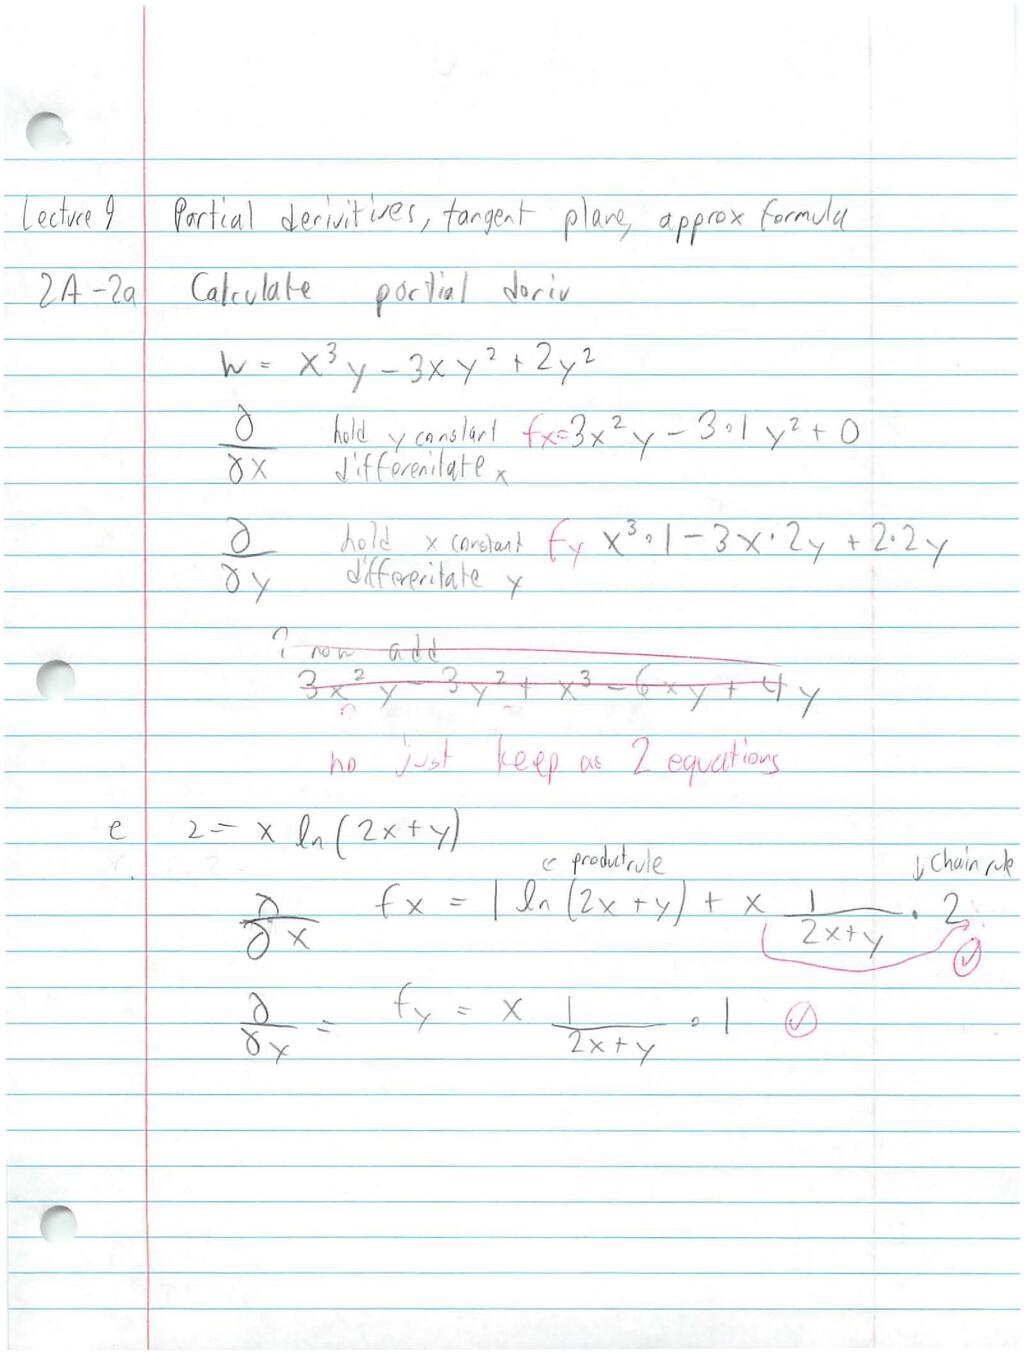 Lecture 9 Partial derivitives, tangent plane, approx formula
2A-2a Calculate partial deriv
w = x³y - 3xy² + 2y²
∂/∂x hold y constant fx=3x²y - 3·1 y² + 0
differenitate x
∂/∂y hold x constant fy x³·1 - 3x·2y + 2·2y
differenitate y
? now add
3x²y - 3y² + x³ - 6xy + 4y
no just keep as 2 equations
e z = x ln(2x+y)
← product rule ↓ Chain rule
∂/∂x fx = 1 ln(2x+y) + x 1/(2x+y) · 2 ✓
∂/∂y = fy = x 1/(2x+y) · 1 ✓